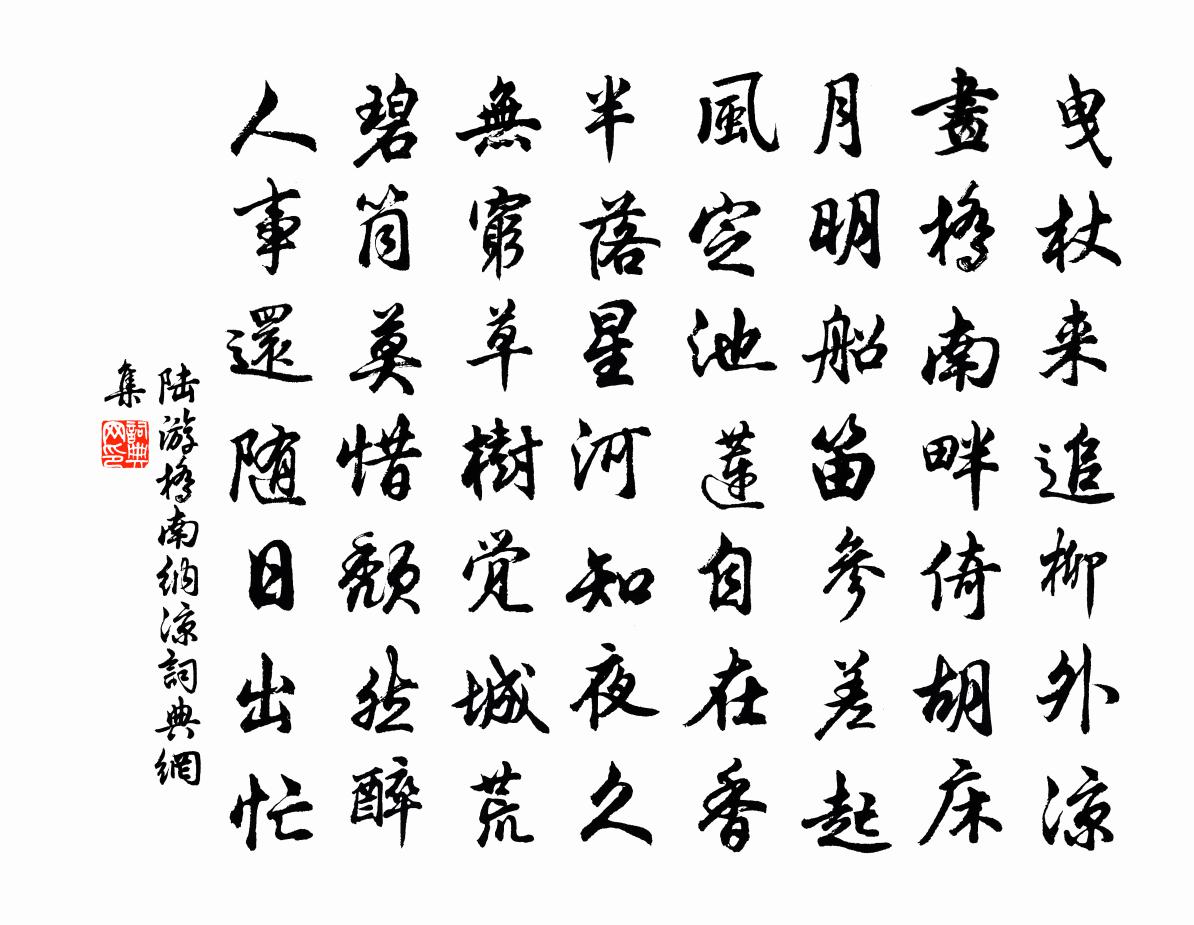 曳杖来追柳外涼
畫橋南畔倚胡床
月明船笛參差起
風定池蓮自在香
半落星河知夜久
無窮草樹覚城荒
碧筒莫惜頹然醉
人事還随日出忙
陆游橋南納涼詞典網
集
詞典
网印